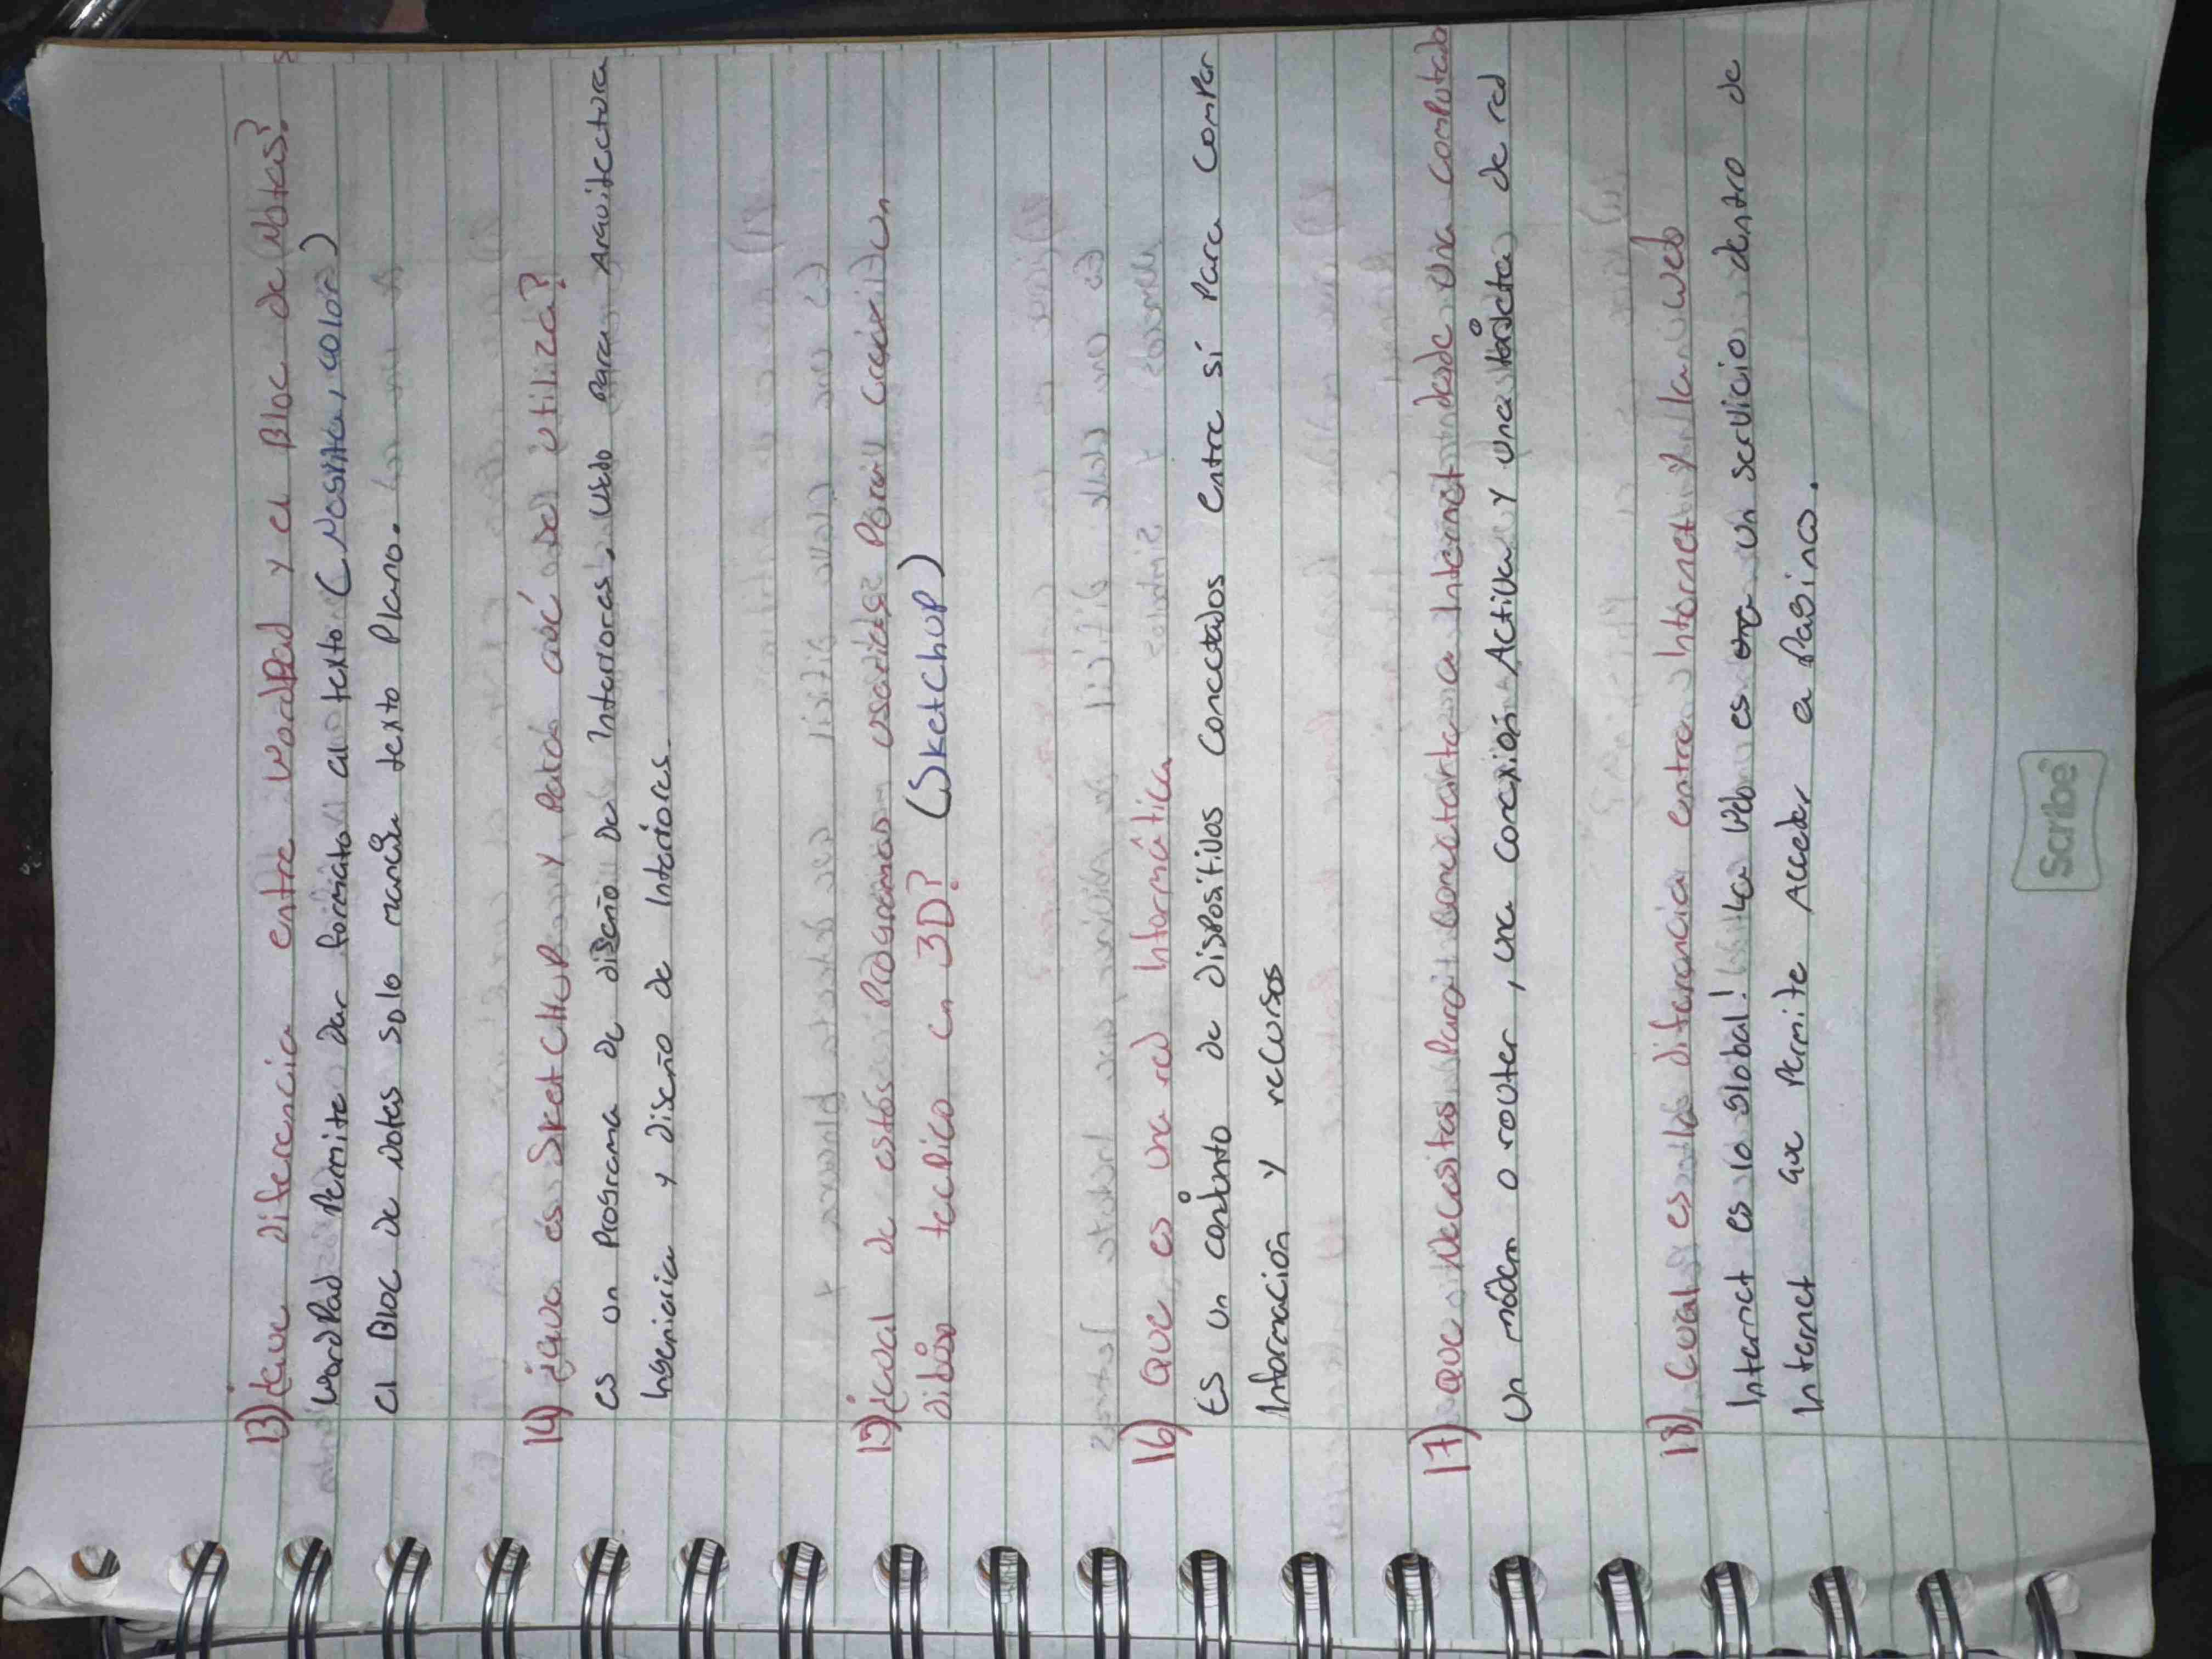 13) ¿que diferencia entre WordPad y el Bloc de Notas?
WordPad Permite Dar formato al texto (Negrita, color)
el Bloc de Notas solo maneja texto Plano.
14) ¿que es SketchUP y para qué se utiliza?
es un Programa de diseño De Interiores. usado para Arquitectura
Ingenieria y diseño de Interiores
15) ¿cual de estos Programas usarias Para crear un
dibujo tecnico en 3D? (SketchUP)
16) que es una red Informática
Es un conjunto de dispositivos Conectados Entre sí Para Compar
Información y recursos
17) que Necesitas Para conectarte a Internet desde una computado
Un módem o router, una conexión Activa y una tarjeta de red
18) Cual es la diferencia entre Internet y la web
Internet es lo global! La Web es un servicio dentro de
Internet que Permite Acceder a Página.
Scribe